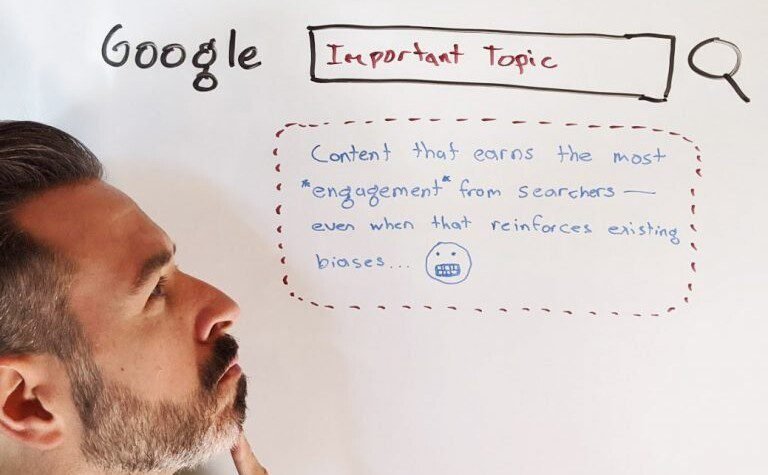 Google Important Topic
Content that earns the most
*engagement* from searchers —
even when that reinforces existing
biases...